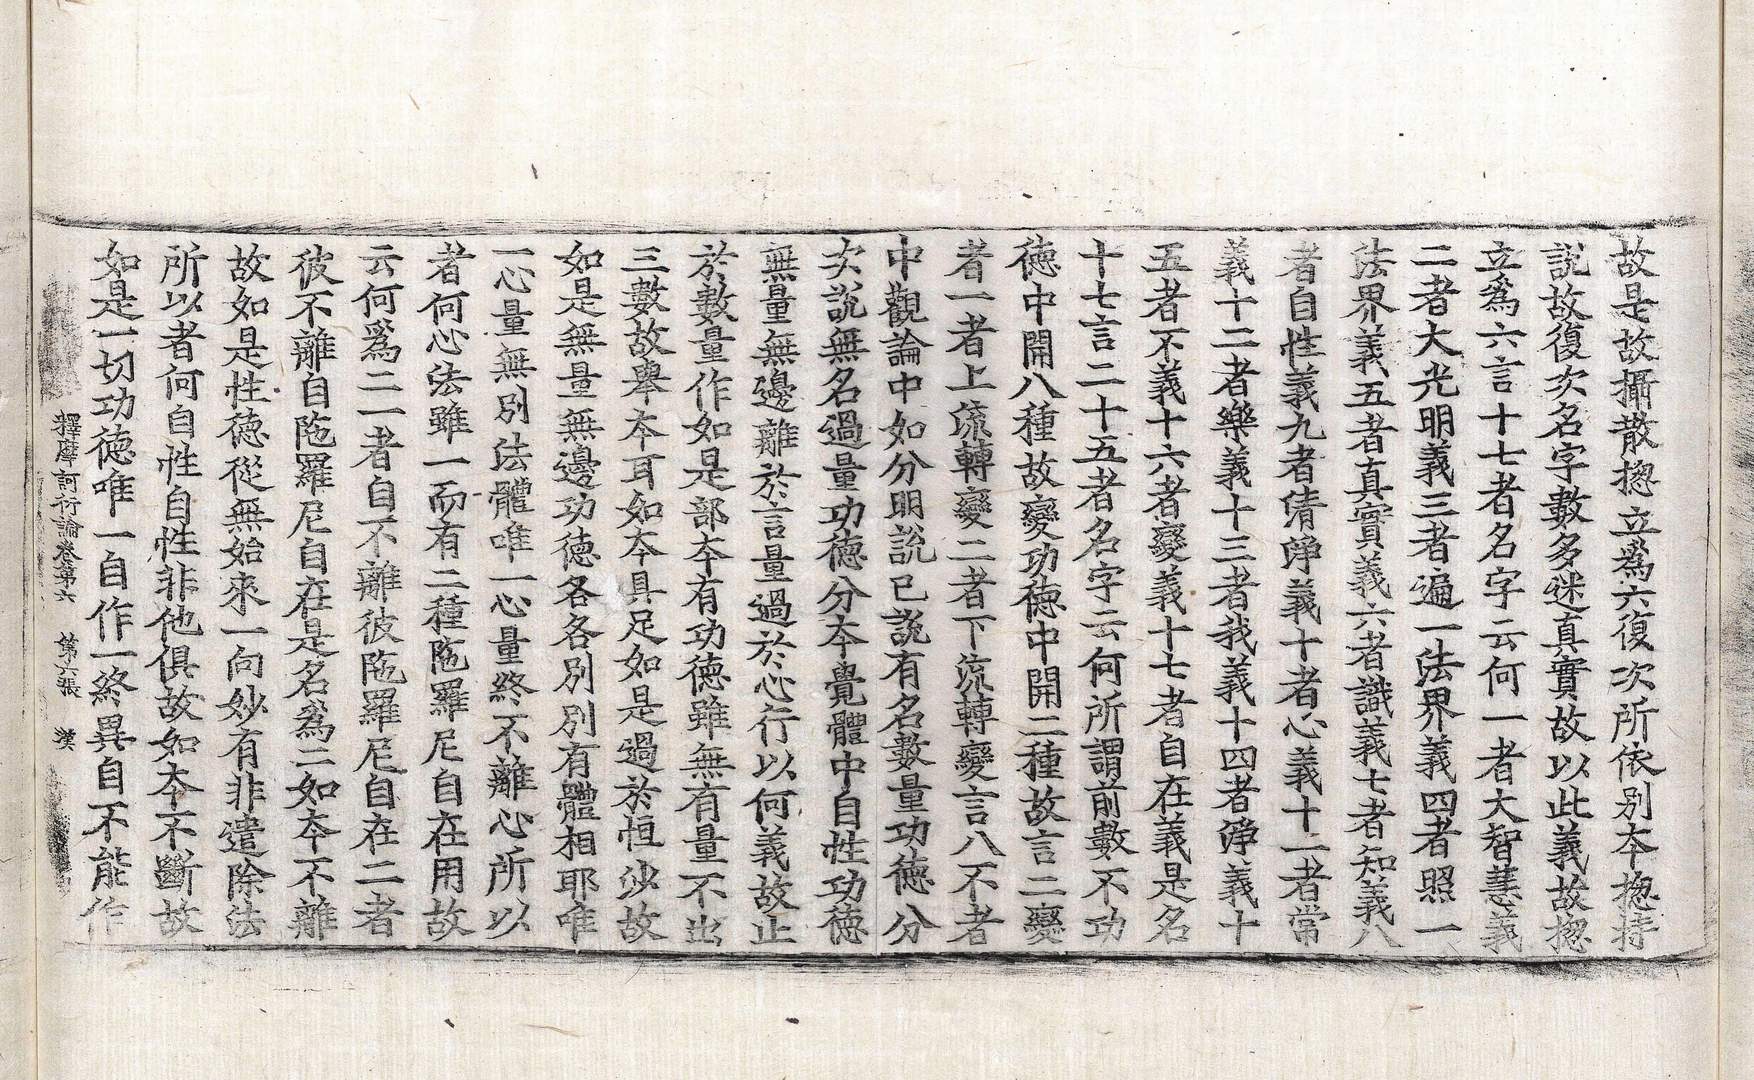 故是故攝散摠立爲六復次所依别夲摠持
說故復次名字數多迷真實故以此義故摠
立爲六言十七者名字云何一者大智慧義
二者大光明義三者遍一法界義四者照一
法界義五者真實義六者識義七者知義八
者自性義九者清淨義十者心義十一者常
義十二者樂義十三者我義十四者淨義十
五者不義十六者變義十七者自在義是名
十七言二十五者名字云何所謂前數不功
徳中開八種故變功徳中開二種故言二變
者一者上流轉變二者下流轉變言八不者
中觀論中如分明說已說有名數量功徳分
次說無名過量功徳分夲覺體中自性功徳
無量無邊離於言量過於心行以何義故止
於數量作如是部夲有功徳雖無有量不出
三數故舉夲耳如夲具足如是過於恒沙故
如是無量無邊功徳各各別別有體相耶唯
一心量無別法體唯一心量終不離心所以
者何心法雖一而有二種陁羅尼自在用故
云何爲二一者自不離彼陁羅尼自在二者
彼不離自陁羅尼自在是名爲二如夲不離
故如是性徳從無始來一向妙有非遣除法
所以者何自性自性非他俱故如夲不斷故
如是一切功徳唯一自作一終異自不能作
釋摩訶衍論卷第六 第六張 漢